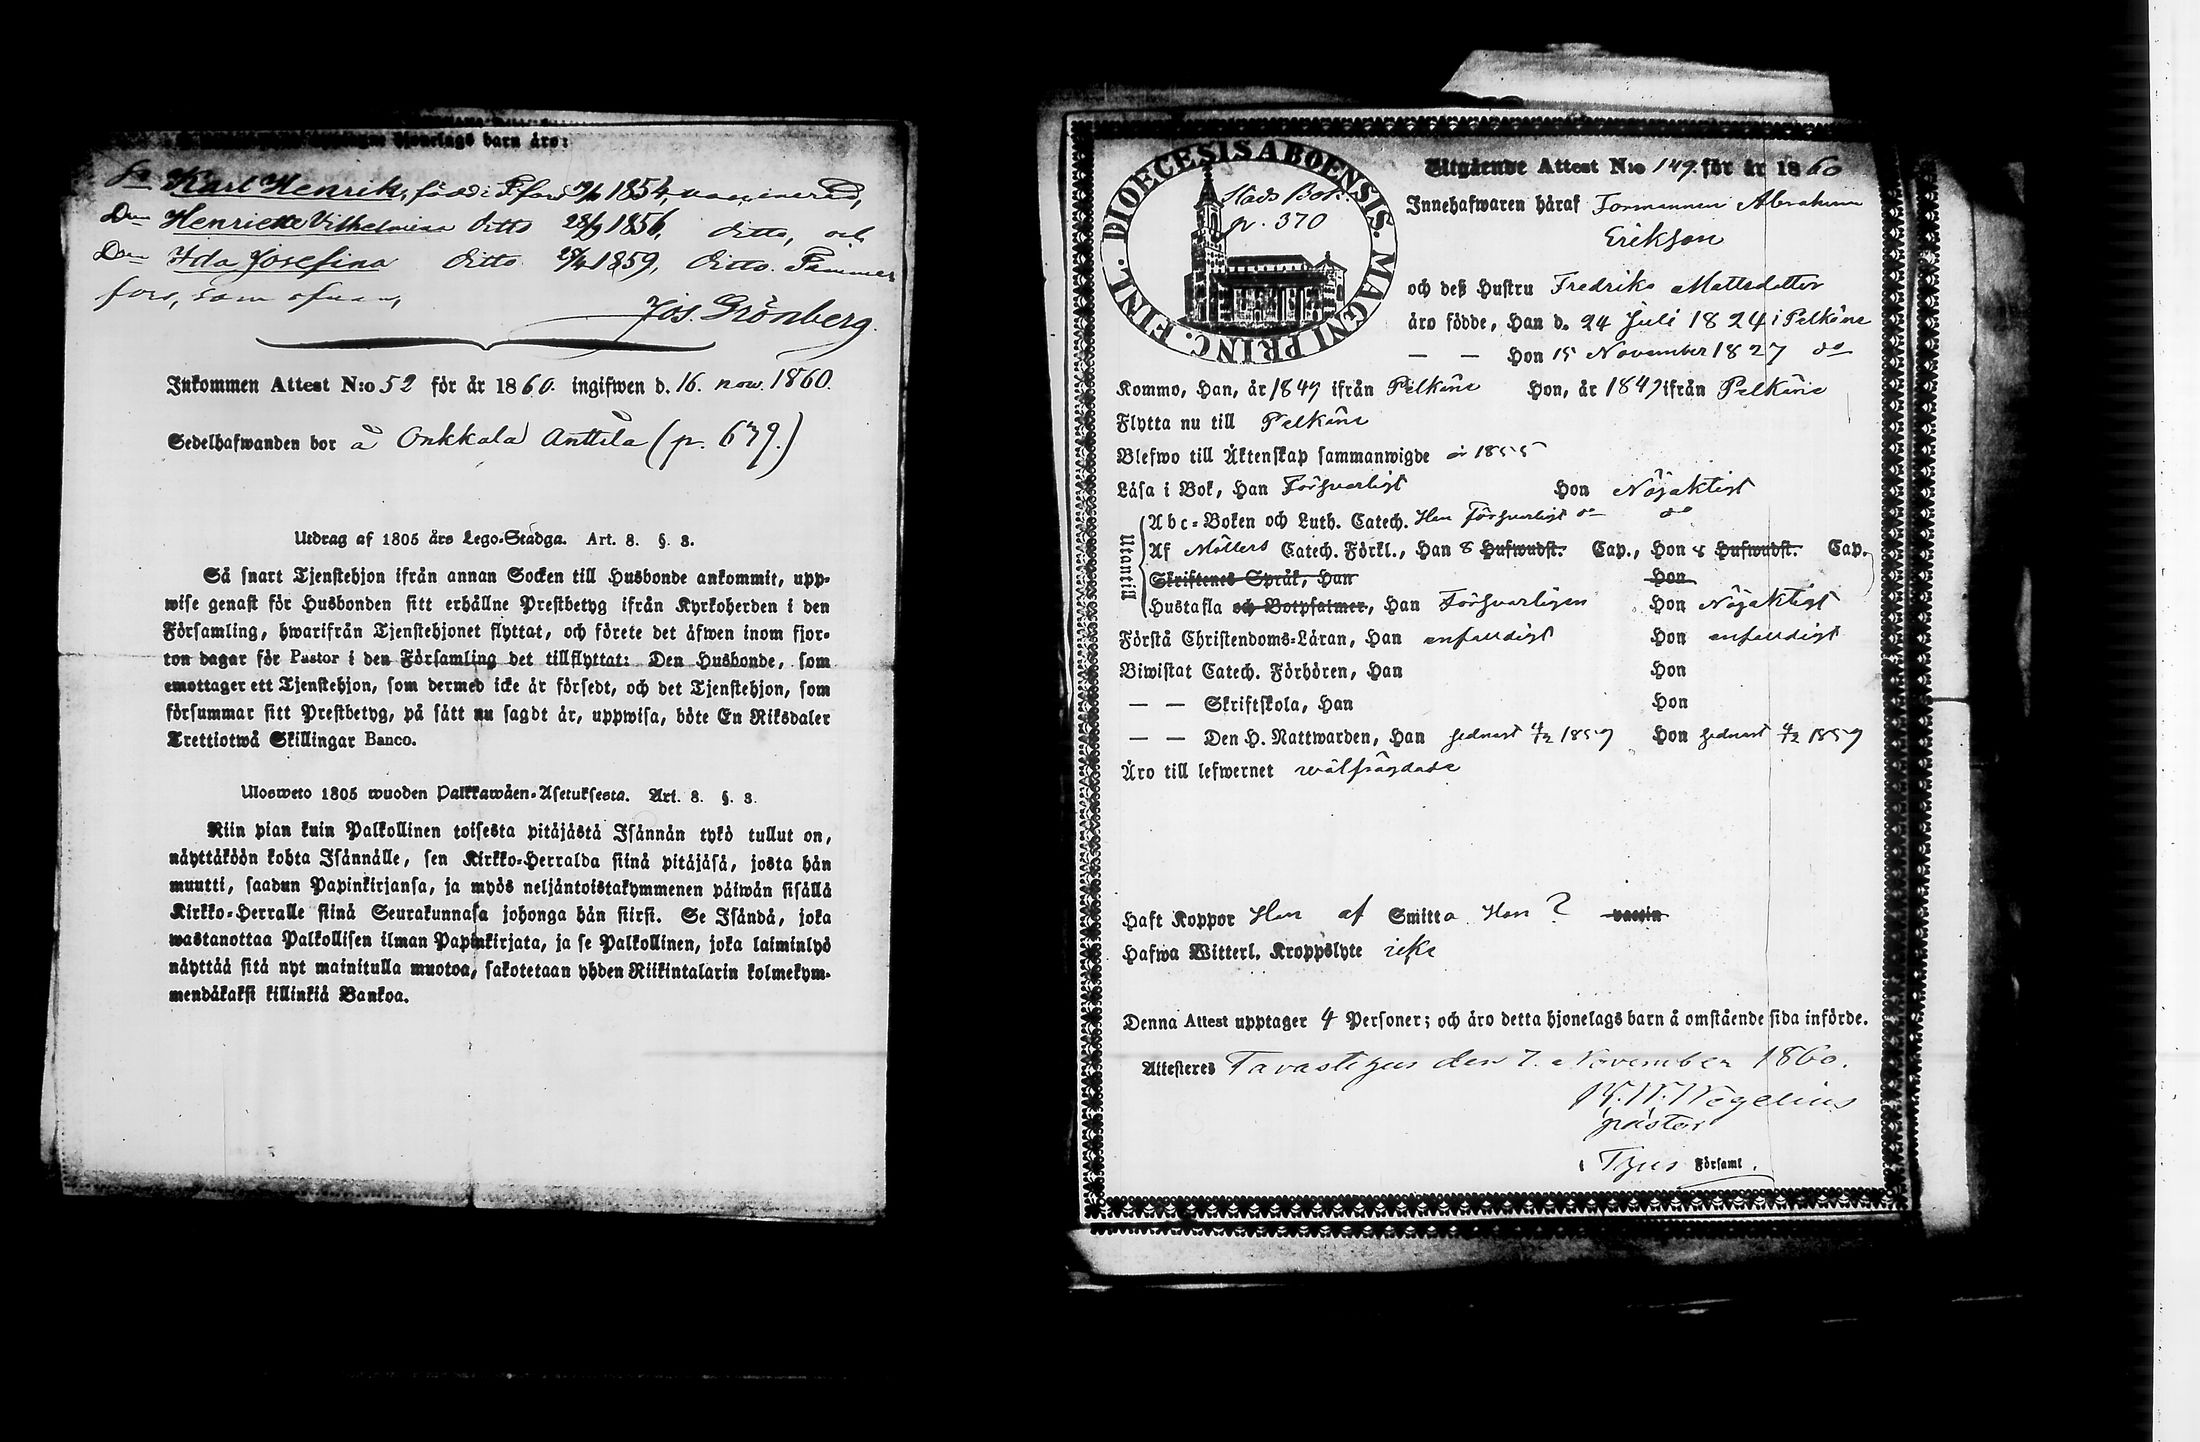 hjonelags barn äro:
Karl Henrik, född i T:fors 1854, vaccinerad,
Henriette Vilhelmina ditto 28/9 1856, ditto, och
Ida Josefina ditto 1859, ditto. Tammer
fors, som ofvan,
Jos. Grönberg.
Inkommen Attest N:o 52 för år 1860. ingifwen d. 16. nov. 1860.
Sedelhafwanden bor å Onkkala Anttila (p. 679.)
Utdrag af 1805 års Lego-Stadga. Art. 8. §. 3.
Så snart Tjenstehjon ifrån annan Socken till Husbonde ankommit, upp-
wise genast för Husbonden sitt erhållne Prestbetyg ifrån Kyrkoherden i den
Församling, hwarifrån Tjenstehjonet flyttat, och förete det äfwen inom fjor-
ton dagar för Pastor i den Församling det tillflyttat: Den Husbonde, som
emottager ett Tjenstehjon, som dermed icke är försedt, och det Tjenstehjon, som
försummar sitt Prestbetyg, på sätt nu sagdt är, uppwisa, böte En Riksdaler
Trettiotwå Skillingar Banco.
Ulosweto 1805 wuoden Palkkawäen-Asetuksesta. Art. 8. §. 3.
Niin pian kuin Palkollinen toisesta pitäjästä Isännän tykö tullut on,
näyttäköön kohta Isännälle, sen Kirkko-Herralda siinä pitäjäsä, josta hän
muutti, saadun Papinkirjansa, ja myös neljäntoistakymmenen päiwän sisällä
Kirkko-Herralle siinä Seurakunnasa johonga hän siirsi. Se Isändä, joka
wastanottaa Palkollisen ilman Papinkirjata, ja se Palkollinen, joka laiminlyö
näyttää sitä nyt mainitulla muotoa, sakotetaan yhden Riikintalarin kolmekym-
mendäkaksi killinkiä Bankoa.
DIOECESIS ABOENSIS. MAGNI PRINC. FINL.
Stads Bok.
p. 370
Utgående Attest N:o 149. för år 1860
Innehafwaren häraf Formannen Abraham
Erikson
och deß Hustru Fredrika Mattsdotter
äro födde, Han d. 24 Juli 1824 i Pelkäne
— — Hon 15 November 1827 do
Kommo, Han, år 1849 ifrån Pelkäne Hon, år 1849 ifrån Pelkäne
Flytta nu till Pelkäne
Blefwo till Äktenskap sammanwigde år 1855
Läsa i Bok, Han Försvarligt Hon Nöjaktigt
Utantill
Abc-Boken och Luth. Catech. Han Försvarligt do
Af Möllers Catech. Förkl., Han 8 Hufwudst. Cap., Hon 8 Hufwudst. Cap.
Skriftenes Språk, Han Hon
Hustafla och Botpsalmer, Han Försvarligen Hon Nöjaktigt
Förstå Christendoms-Läran, Han enfaldigt Hon enfaldigt
Biwistat Catech. Förhören, Han Hon
— — Skriftskola, Han Hon
— — Den H. Nattwarden, Han sednast 4/12 1859 Hon sednast 4/12 1859
Äro till lefwernet wälfrägdade
Haft Koppor Han af Smitta Hon ? vaccin
Hafwa Witterl. Kroppslyte icke
Denna Attest upptager 4 Personer; och äro detta hjonelags barn å omstående sida införde.
Attesteres Tavastehus den 7. November 1860.
Wegelius
pastor
i T:hus Församl.